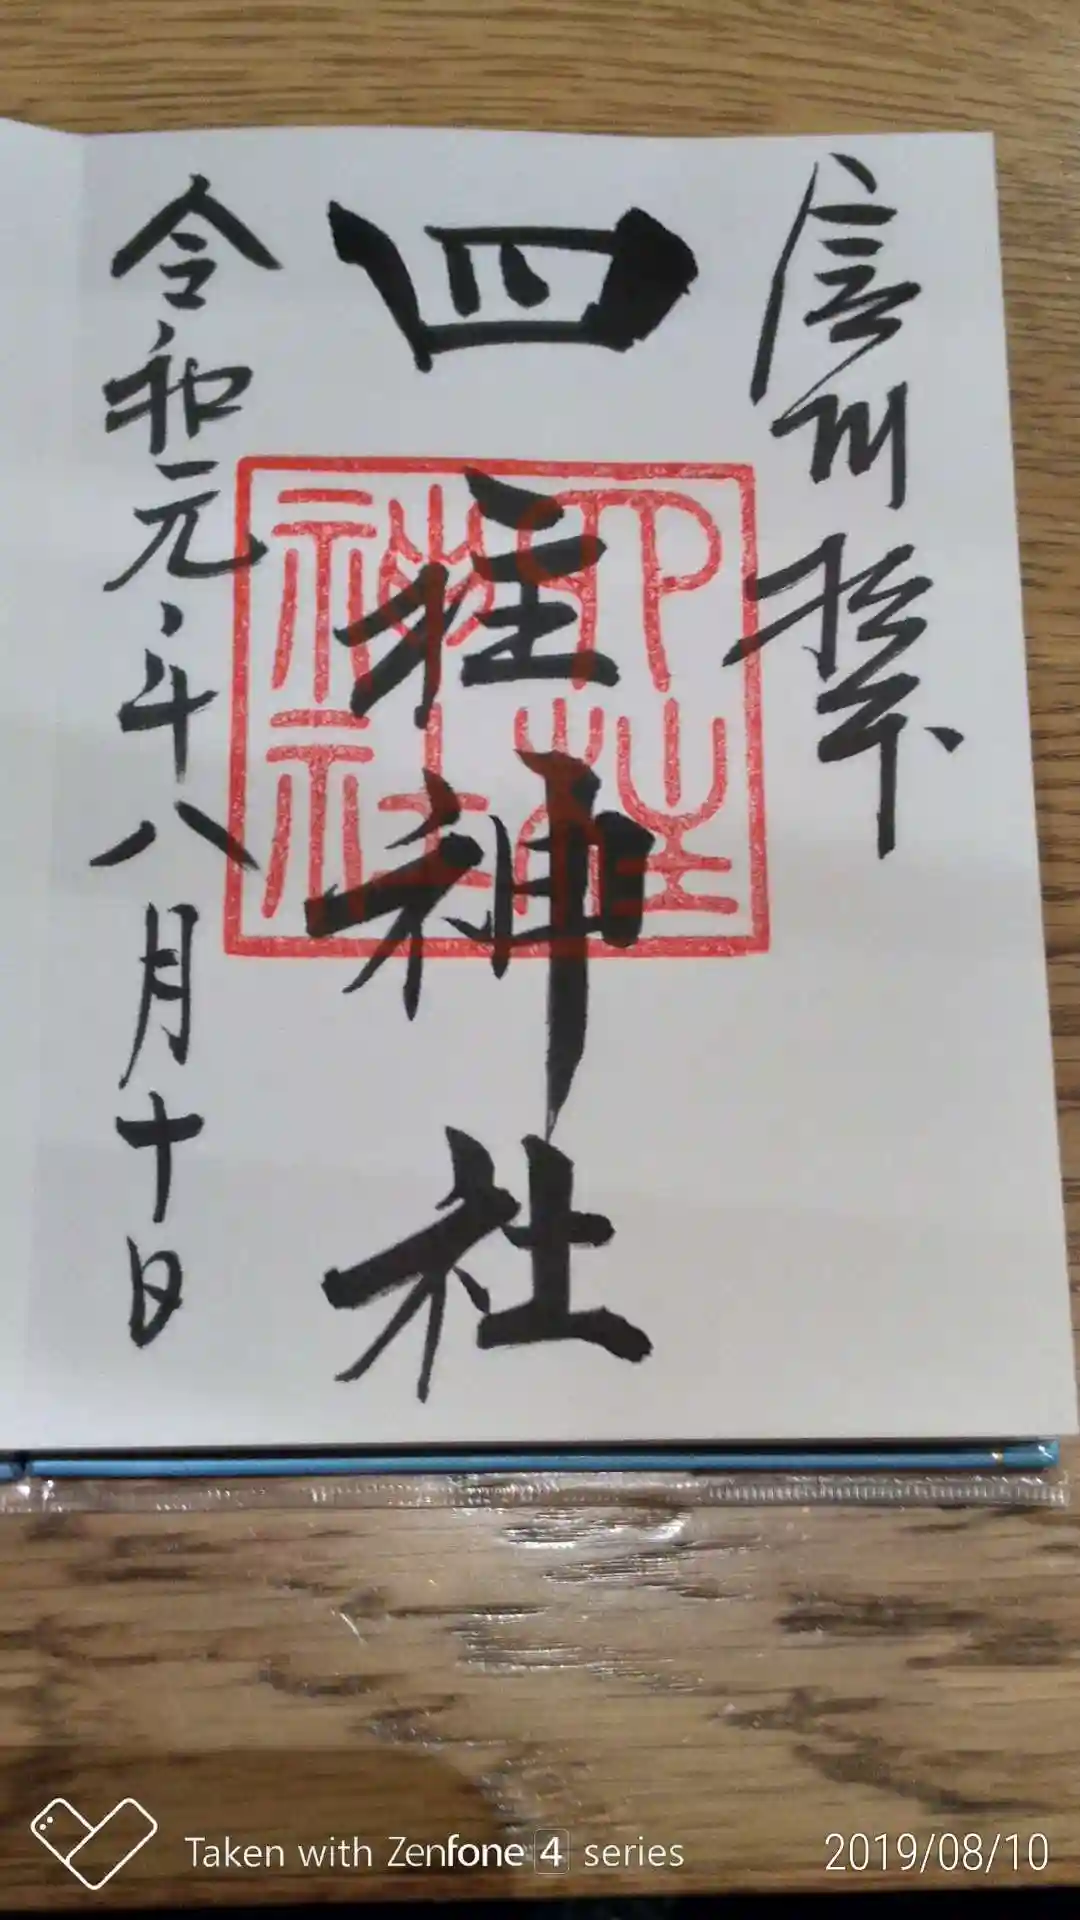 信州松本
四柱神社
令和元年八月十日
四柱
神社
Taken with Zenfone 4 series
2019/08/10